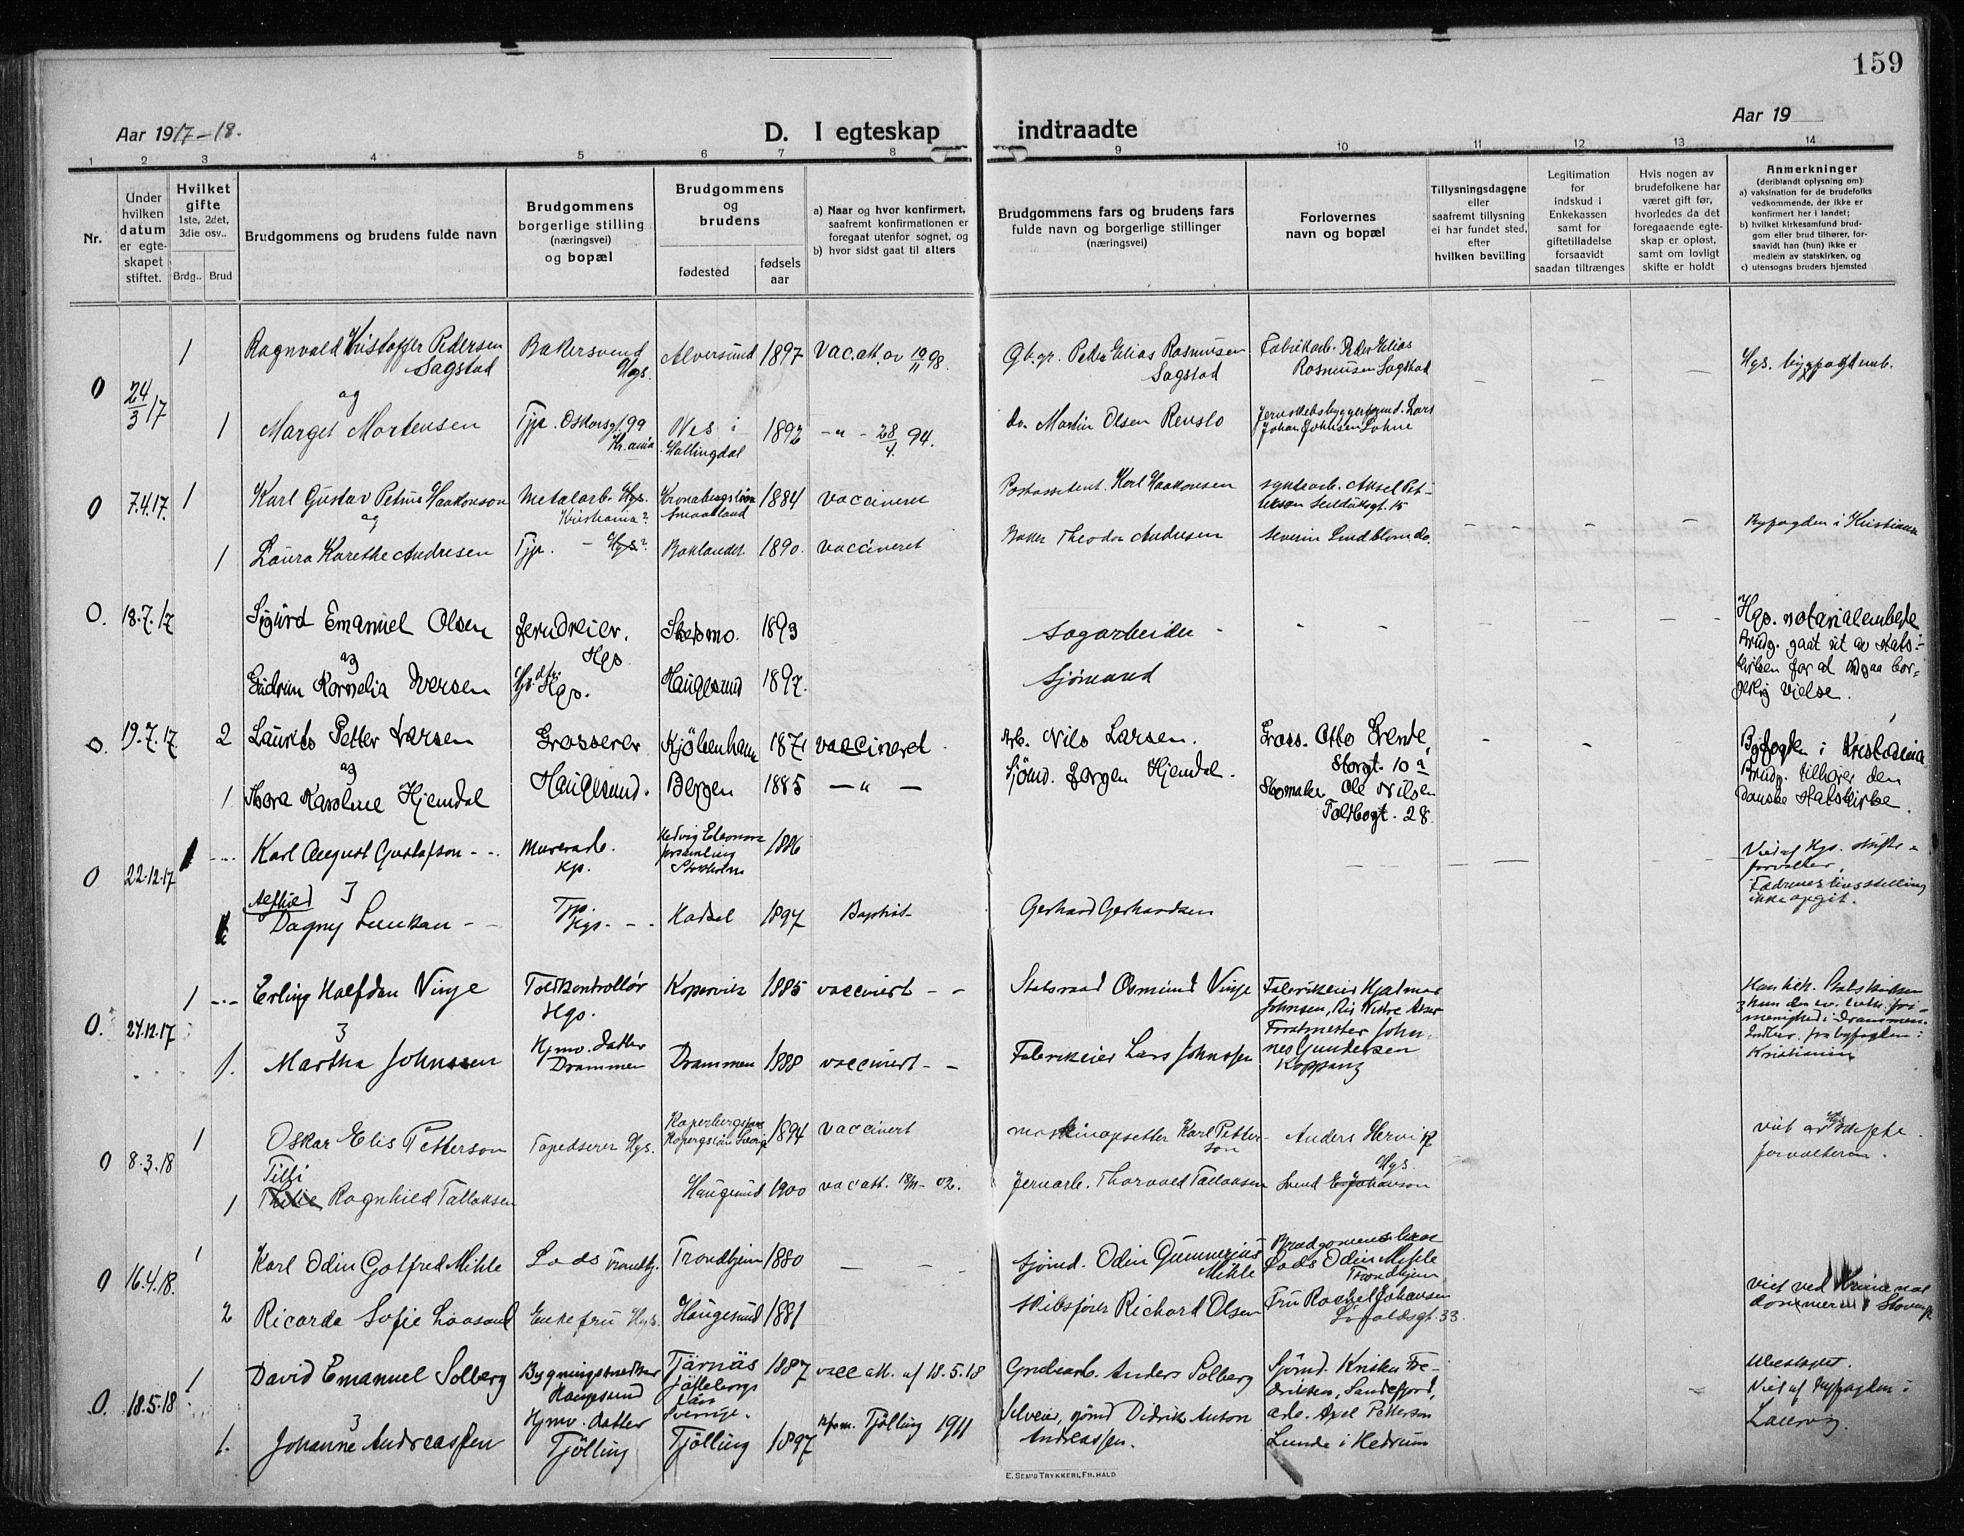 159
Aar 1917-18.
D. I egteskap indtraadte
Aar 19
1 2 3 4 5 6 7 8 9 10 11 12 13 14
Nr.
Under hvilken datum er egte- skapet stiftet.
Hvilket gifte
1ste, 2det, 3die osv..
Brdg.. Brud
Brudgommens og brudens fulde navn
Brudgommens borgerlige stilling (næringsvei) og bopæl
Brudgommens og brudens
fødested
fødsels aar
a) Naar og hvor konfirmert, saafremt konfirmationen er foregaat utenfor sognet, og
b) hvor sidst gaat til alters
Brudgommens fars og brudens fars fulde navn og borgerlige stillinger (næringsvei)
Forlovernes navn og bopæl
Tillysningsdagene eller saafremt tillysning ei har fundet sted, efter hvilken bevilling
Legitimation for indskud i Enkekassen samt for giftetilladelse forsaavidt saadan tiltrænges
Hvis nogen av brudefolkene har været gift før, hvorledes da det foregaaende egte- skap er opløst, samt om lovligt skifte er holdt
Anmerkninger
(deriblandt oplysning om):
a) vaksination for de brudefolks vedkommende, der ikke er konfirmert her i landet;
b) hvilket kirkesamfund brud- gom eller brud tilhører, for- saavidt han (hun) ikke er medlem av statskirken, og
c) utensogns bruders hjemsted
0 24/3 17 1 Ragnvald Kristoffer Pedersen Sagstad Bakersvend Hgs. Alversund 1897 Vac. att. av 10/11 98. Gb. gr. Peder Elias Rasmusen Sagstad Fabrikarb. Peder Elias Rasmusen Sagstad
og
1 Marget Mortensen Tjp. Oskarsgt 99 Kr.ania Nes i Hallingdal 1892 -"- 28/4 94. do. Martin Olsen Renslo Johan Johnsen Lohne
0 7.4.17. 1 Karl Gustav Petrus Haakonson Metalarb. Hgs. Kristiania? Kronobergs län Smaaland 1884 vaccineret Karl Haakonsen
og
1 Laura Karethe Andresen Tjp. - Hgs? Baklandet 1890. vaccineret Baker Theodor Andresen Severin Lindblom do. Byfogden i Kristiania
0. 18.7.17 Sigurd Emanuel Olsen Jerndreier. Hgs. 1893 Sagarbeider Hgs. notarialembede
og Brudg. gaat ut av stats- kirken for at indgaa bor- gerlig vielse.
Gudrun Kornelia Iversen Hgs. Haugesund 1897. Sjømand
0. 19.7.17. 2 Laurits Petter Larsen Grosserer Kjöbenhavn 1871 vaccinert. Arb. Nils Larsen. Gross. Otto Grende, Storgt. 10 a Byfogden i Kristiania
og Brudg. tilhører den Danske statskirke.
1 Thora Karoline Hjemdal Haugesund. Bergen 1885 — " — Sjömd. Jørgen Hjemdal. Skomaker Ole Nilsen Toldbogt. 28
0 22.12.17 1 Karl August Gustafson - - Murerarb. Kp. Hedvig Eleonora forsamling Stokholm 1886 Viet af Hgs. skifte- forvalter. Fædrenes livsstilling ikke opgit.
Alfhild Dagny Tjp. Hgs. - - Hadsel 1897 Baptist Gerhard Gerhardsen
0. 27.12.17 1 Erling Halfdan Vinje Toldkontrollør Hgs. Kopervik 1885 vaccinert - - Statsraad Aamund Vinje Fabrikeier Hjalmar Johnsen,
1. Martha Johnssen Hjmv. datter Drammen Drammen 1888 vaccinert - - Fabrikeier Lars Johnssen Forstmester Johan- nes Gundersen Koppang Kristiania
0 8.3.18 1 Oskar Elis Petterson Tapedserer Hgs. 1894 vaccinert maskinopsetter Karl Petter- son Anders Hervik Hgs. viet av Hgs skifte- forvalteren.
Tilli
1 Ragnhild Tallaksen Haugesund 1900 vac att. 18/11 - 02. Jernarb. Thorvald Tallaksen Svend E. Johanson
0 16.4.18. 1 Karl Odin Gotfred Mihle Lods Trondhj. Trondhjem 1880 — — — Sjömd. Odin Gunnerius Mihle Brudgommens Lods Odin Mihle Trondhjem
2 Ricarda Sofie Enkefru Hgs. Haugesund 1881 Skibsfører Richard Olsen Fru Rachel Johansen 33. viet ved
0. 18.5.18 1 David Emanuel Solberg Bygningssnedker Haugesund Tjärnäs Göteborgs län Sverige. 1887 vacc att. af 18.5.18 Anders Solberg Sjömd. Kristen Fre- driksen, Sandefjord, Ubeslegtet. Viet af byfogden i Larvig
1. Johanne Andreassen Hjmv. datter Tjölling Tjölling 1897 Kfom. Tjölling 1911 Selveier, sjömd Didrik Anton Andreassen. arb. Axel Petterson Lunde i Hedrum
E. SEM'S TRYKKERI, FR.HALD